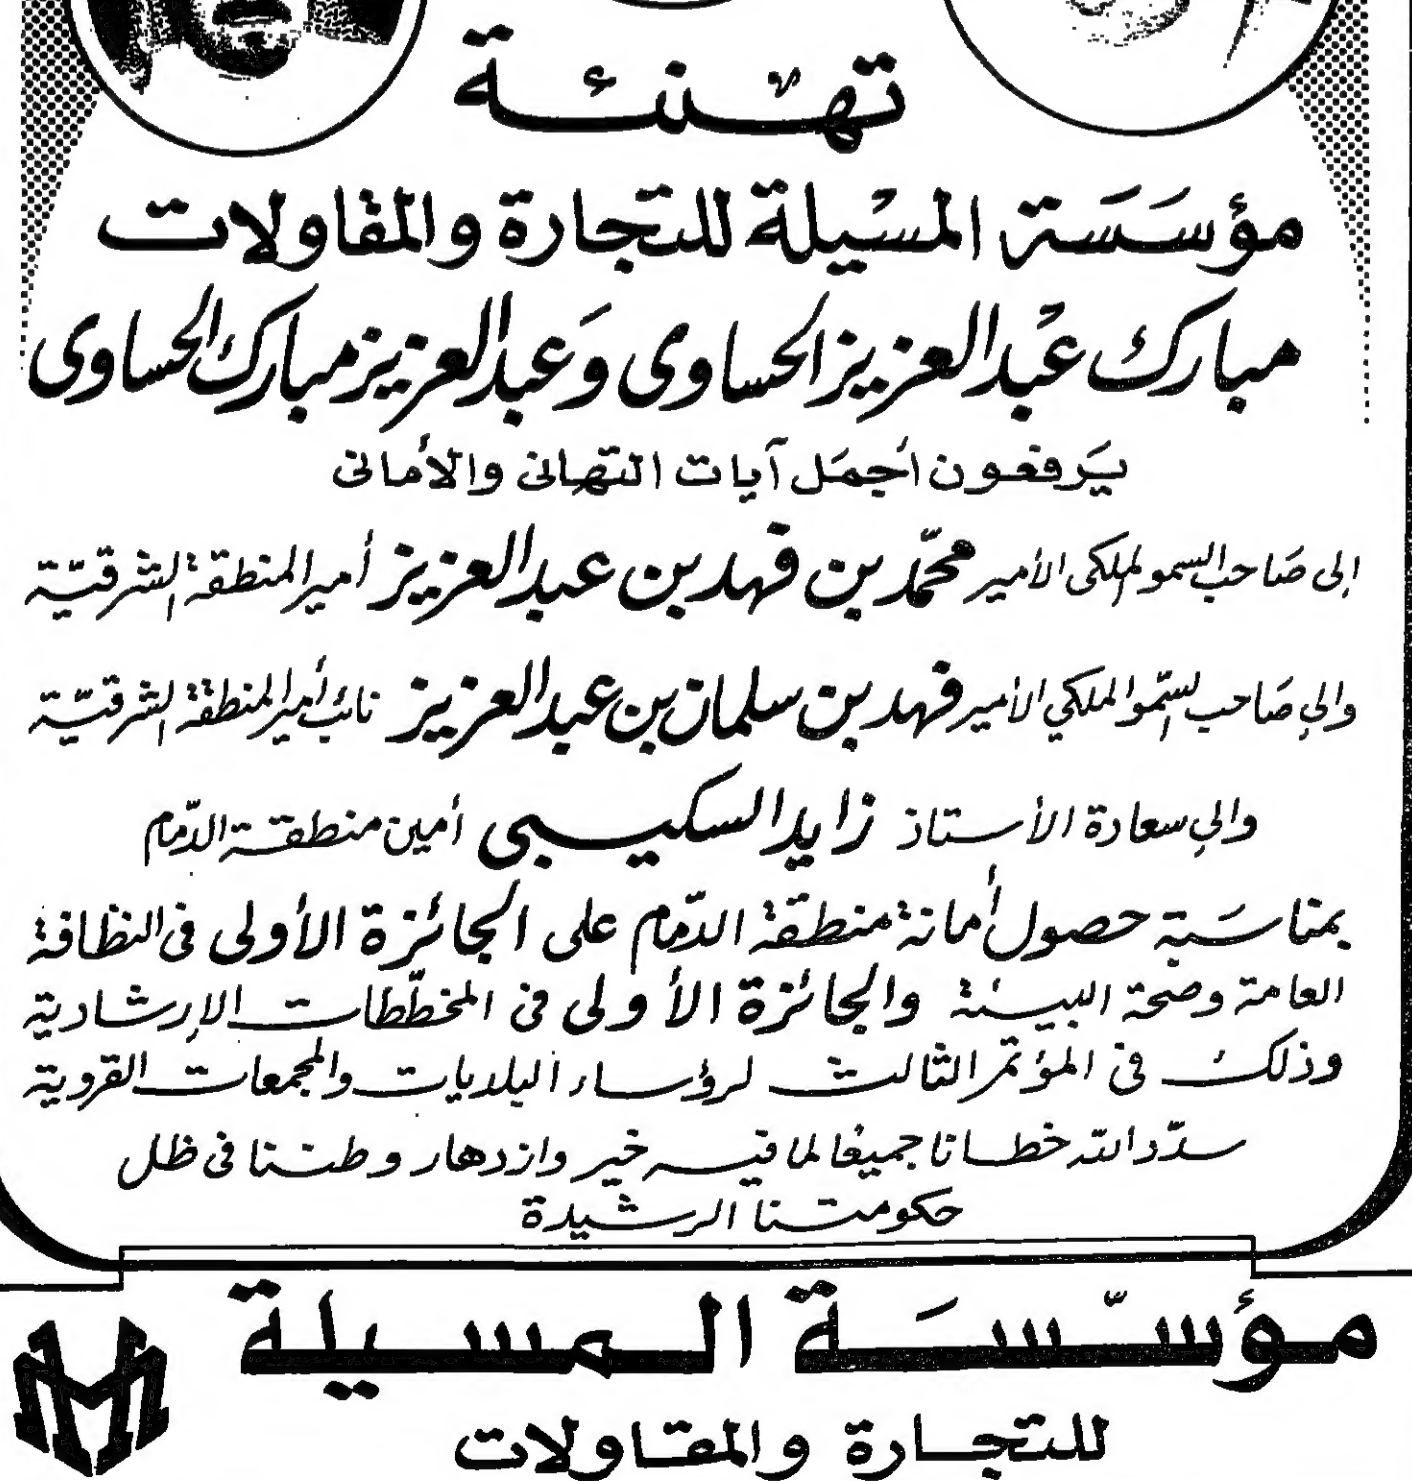 تهنئة
مؤسَسَة المسيلة للتجارة والمقاولات
مبارك عبد العزيز الحساوى وَعبد العزيز مبارك الحساوى
يَرفعون أجمَل آيات التهانى والأمانى
إلى صَاحب السمو الملكى الأمير محمّد بن فهد بن عبد العزيز أمير المنطقة الشرقيّة
والى صَاحب السّمو الملكي الأمير فهد بن سلمان بن عبد العزيز نائب أمير المنطقة الشرقيّة
والى سعادة الأستاذ زايد السكيبى أمين منطقة الدّمام
بمناسَبة حصول أمانة منطقة الدّمام على الجائزة الأولى فى النظافة
العامة وصحة البيئة والجائزة الأولى فى المخطّطات الإرشادية
وذلك فى المؤتمر الثالث لرؤساء البلديات والمجمعات القروية
سدّد الله خطانا جميعًا لما فيه خير وازدهار وطننا فى ظل
حكومتنا الرشيدة
مؤسّسَة المسيلة
للتجارة والمقاولات